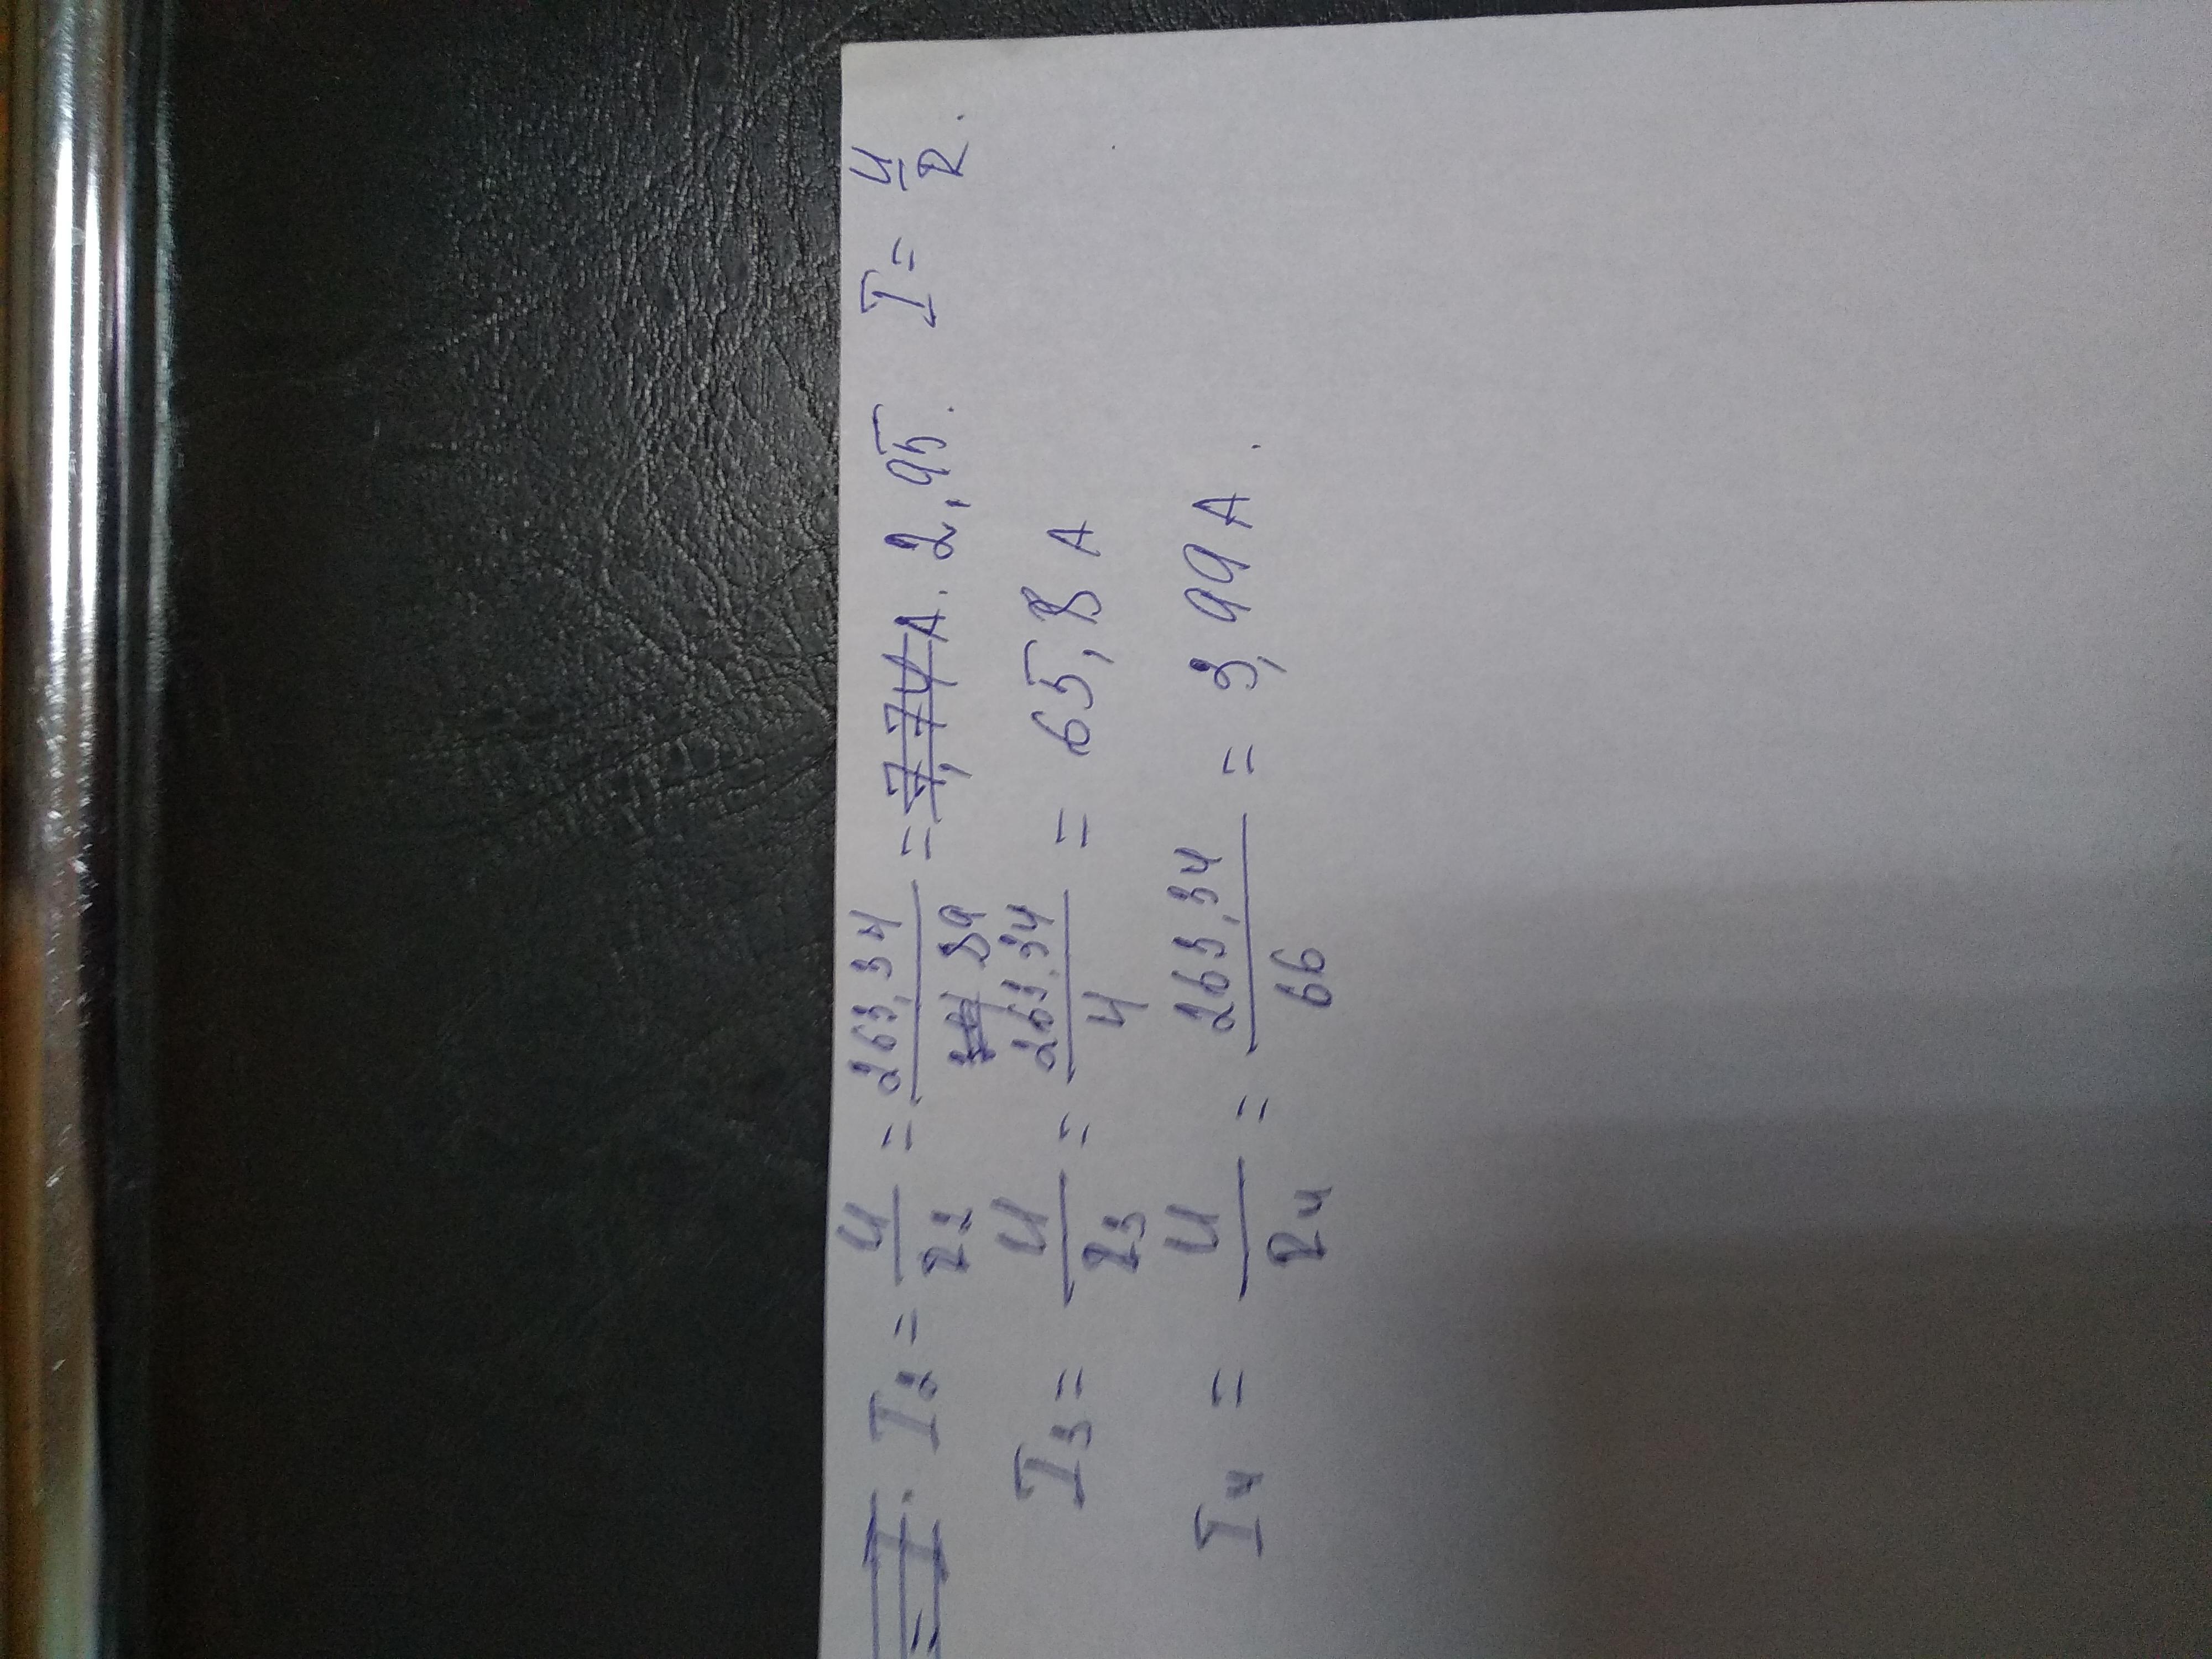 I₂ = U/R₂ = 263,34/89 = 7,74 A. 2,95. I = U/R.
I₃ = U/R₃ = 263,34/4 = 65,8 A
I₄ = U/R₄ = 263,34/66 = 3,99 A.